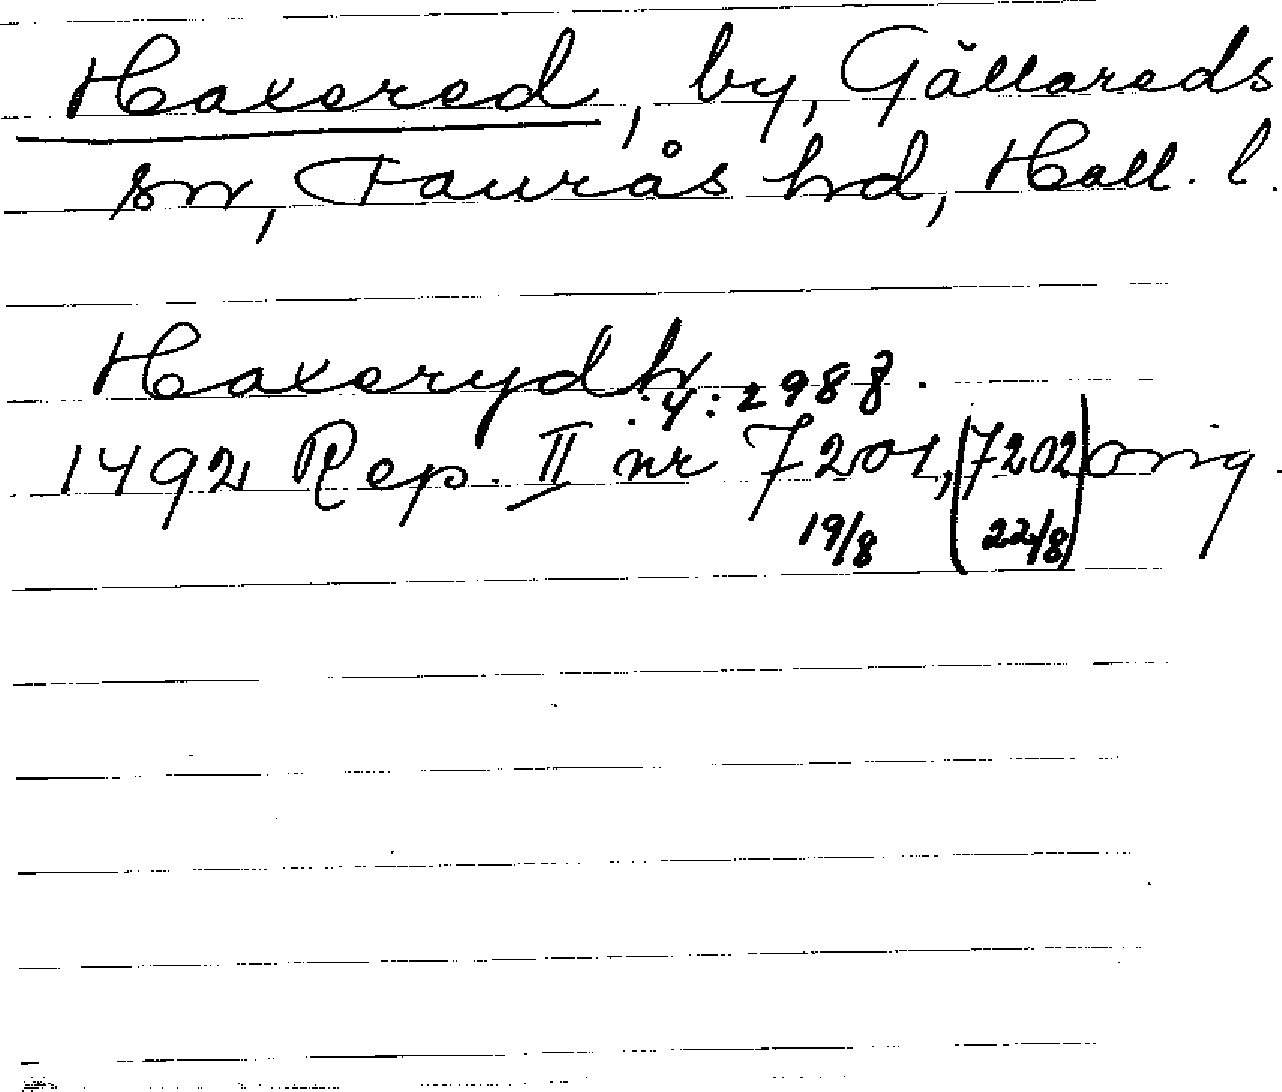 Haxered, by, Gällareds
sn, Faurås hd, Hall. l.
Haxeryd h. 4:2988.
1492 Rep. II nr 7201, (7202) orig.
19/8 (22/8)